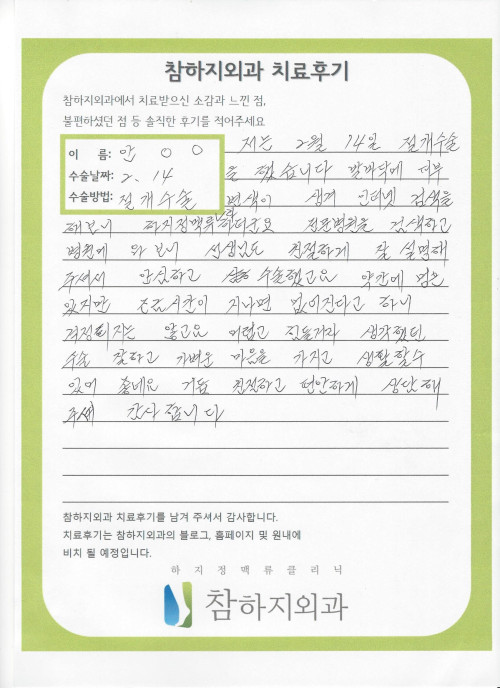 참하지외과 치료후기
참하지외과에서 치료받으신 소감과 느낀 점,
불편하셨던 점 등 솔직한 후기를 적어주세요
이 름: 안 ○ ○
수술날짜: 2. 14
수술방법: 절개수술
저는 2월 14일 절개수술
을 했습니다 발바닥에 피부
변색이 생겨 인터넷 검색을
해보니 하지정맥류라더군요 전문병원을 검색하고
병원에 와 보니 선생님도 친절하게 잘 설명해
주셔서 안심하고 수술했고요 약간에 멍은
있지만 시간이 지나면 없어진다고 하니
걱정되지는 않고요 어렵고 힘들거라 생각했던
수술 잘하고 가벼운 마음을 가지고 생활할수
있어 좋네요 거듭 친절하고 편안하게 상담해
주셔 감사합니다
참하지외과 치료후기를 남겨 주셔서 감사합니다.
치료후기는 참하지외과의 블로그, 홈페이지 및 원내에
비치 될 예정입니다.
하지정맥류클리닉
참하지외과